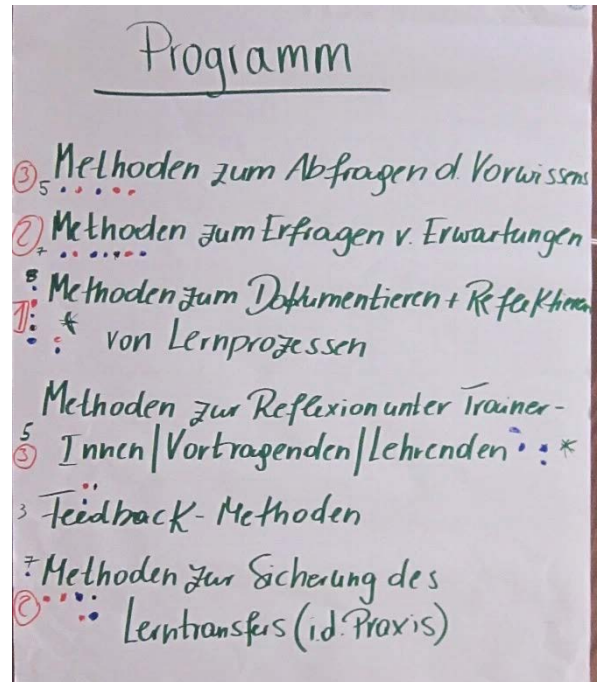 Programm
③ 5 Methoden zum Abfragen d. Vorwissens
② 7 Methoden zum Erfragen v. Erwartungen
8 Methoden zum Dokumentieren + Reflektieren
1 * von Lernprozessen
Methoden zur Reflexion unter Trainer-
5 ③ Innen|Vortragenden|Lehrenden *
3 Feedback-Methoden
7 Methoden zur Sicherung des
② Lerntransfers (i.d. Praxis)